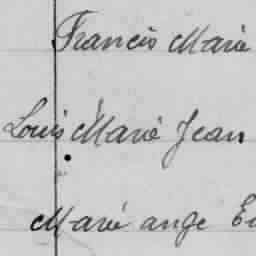 Francis Marie
Louis Marie Jean
Marie ange